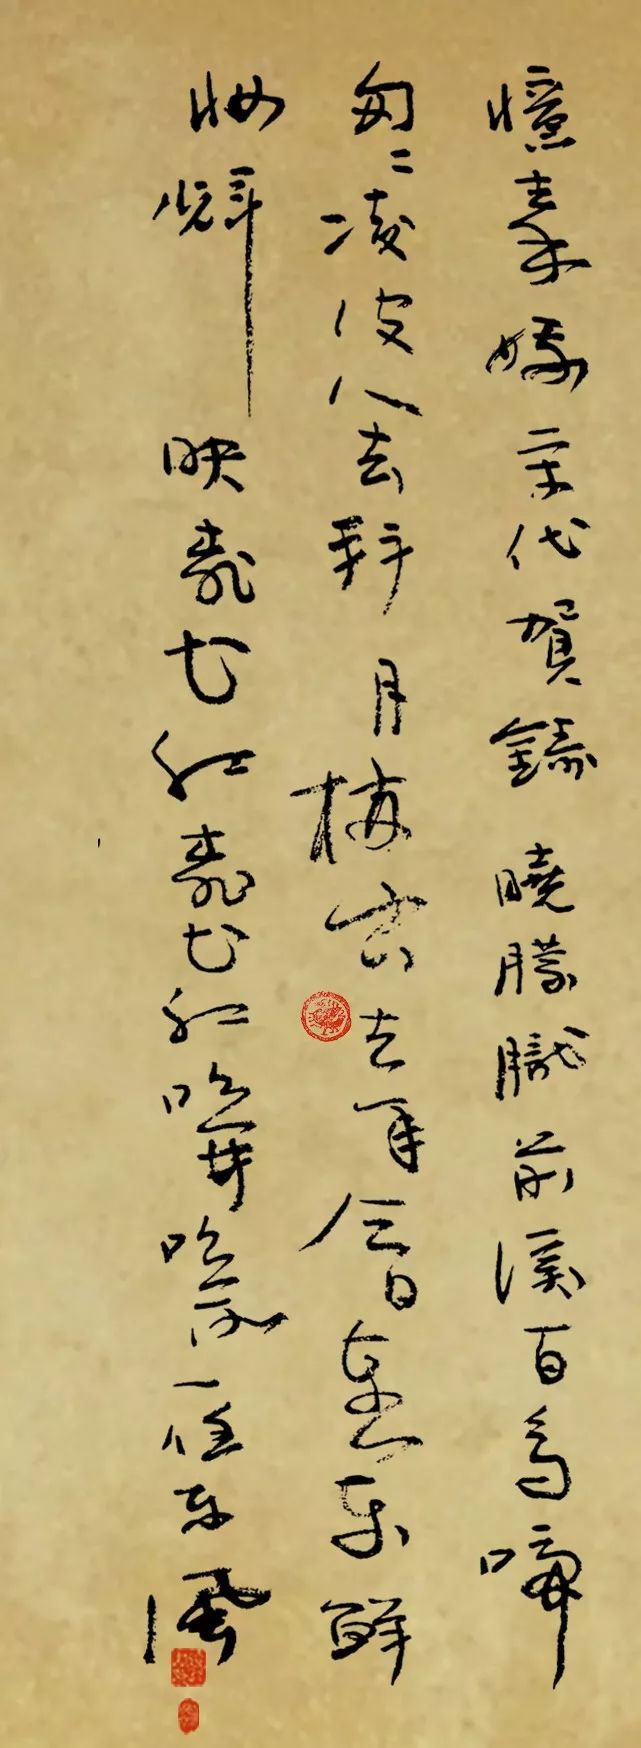 憶秦娥 宋代 賀鑄 曉朦朧前溪百鳥啼
匆〻凌波人去拜月樓空去年今日東門東鮮
妝輝映桃花紅桃花紅吹開吹落一任東風